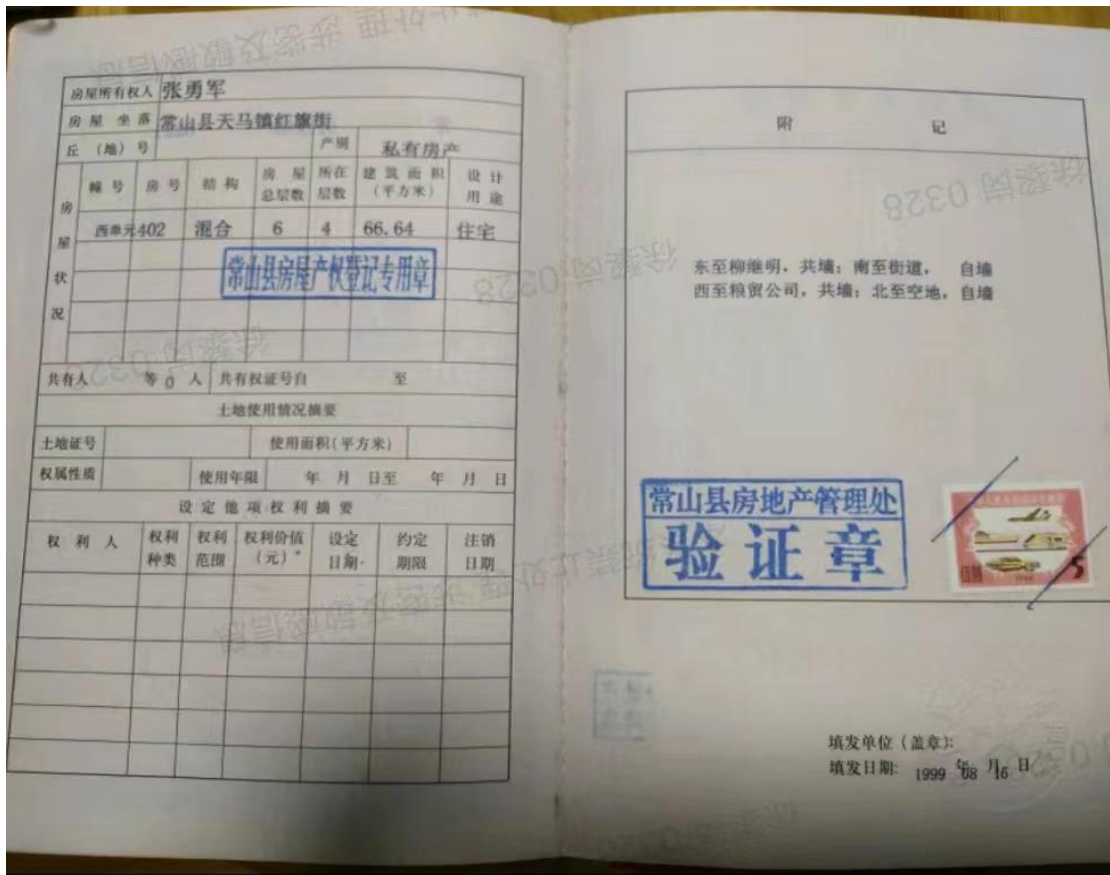 房屋所有权人 张勇军
房屋坐落 常山县天马镇红旗街
丘（地）号 产别 私有房产
房屋状况
幢号 房号 结构 房屋总层数 所在层数 建筑面积（平方米） 设计用途
西单元 402 混合 6 4 66.64 住宅
常山县房屋产权登记专用章
共有人 等 0 人 共有权证号自 至
土地使用情况摘要
土地证号 使用面积(平方米)
权属性质 使用年限 年 月 日至 年 月 日
设定他项权利摘要
权利人 权利种类 权利范围 权利价值（元） 设定日期 约定期限 注销日期
附 记
东至柳继明，共墙；南至街道， 自墙
西至粮贸公司，共墙；北至空地，自墙
常山县房地产管理处
验证章
伍圆
5
填发单位（盖章）:
填发日期: 1999 年 08 月 16 日
徐黎岗 0328
徐黎岗 0328
徐黎岗 0328
禁止处理 涉密及敏感信息